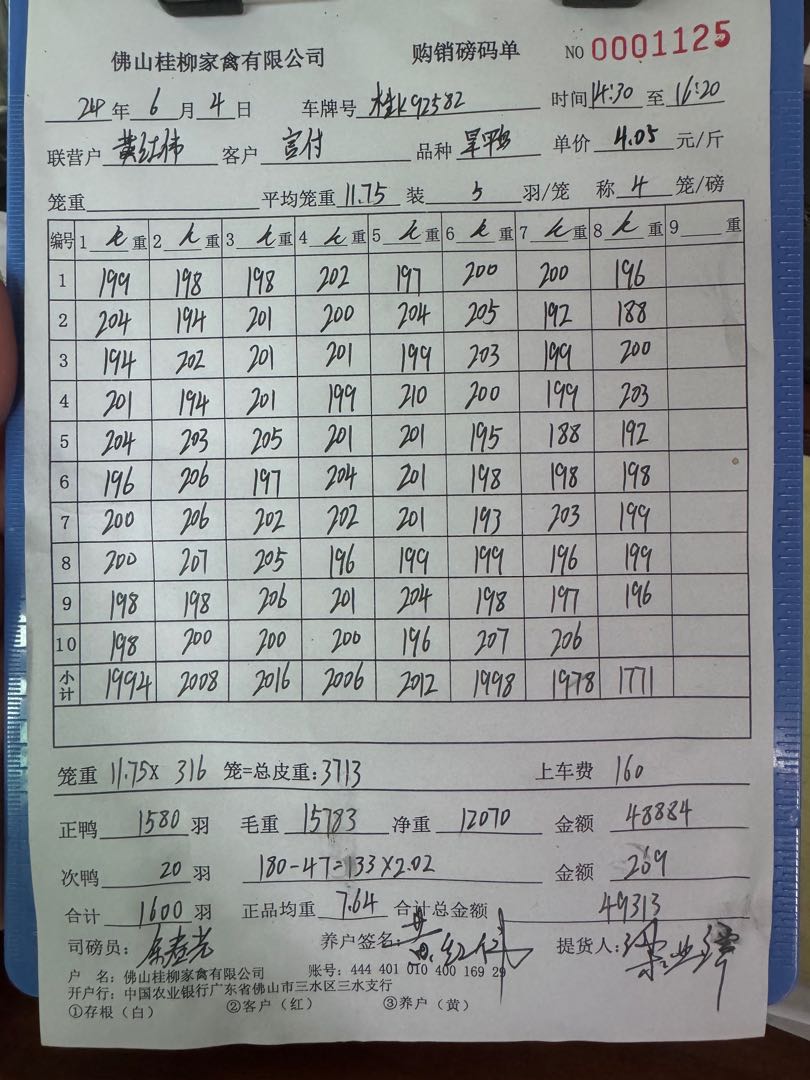 佛山桂柳家禽有限公司 购销磅码单 NO 0001125
24年 6月 4日 车牌号 桂K92582 时间14:30至16:20
联营户 黄红伟 客户 言付 品种 单价 4.05 元/斤
笼重 平均笼重 11.75 装 5 羽/笼 称 4 笼/磅
编号 1 毛重 2 毛重 3 毛重 4 毛重 5 毛重 6 毛重 7 毛重 8 毛重 9 重
1 199 198 198 202 197 200 200 196
2 204 194 201 200 204 205 192 188
3 194 202 201 201 199 203 199 200
4 201 194 201 199 210 200 199 203
5 204 203 205 201 201 195 188 192
6 196 206 197 204 201 198 198 198
7 200 206 202 202 201 193 203 199
8 200 207 205 196 199 199 196 199
9 198 198 206 201 204 198 197 196
10 198 200 200 200 196 207 206
小计 1994 2008 2016 2006 2012 1998 1978 1771
笼重 11.75× 316 笼=总皮重:3713 上车费 160
正鸭 1580 羽 毛重 15783 净重 12070 金额 48884
次鸭 20 羽 180-47=133×2.02 金额 269
合计 1600 羽 正品均重 7.64 合计总金额 49313
司磅员: 养户签名: 黄红伟 提货人:
户 名:佛山桂柳家禽有限公司 账号:444 401 010 400 169 29
开户行:中国农业银行广东省佛山市三水区三水支行
①存根(白) ②客户(红) ③养户(黄)